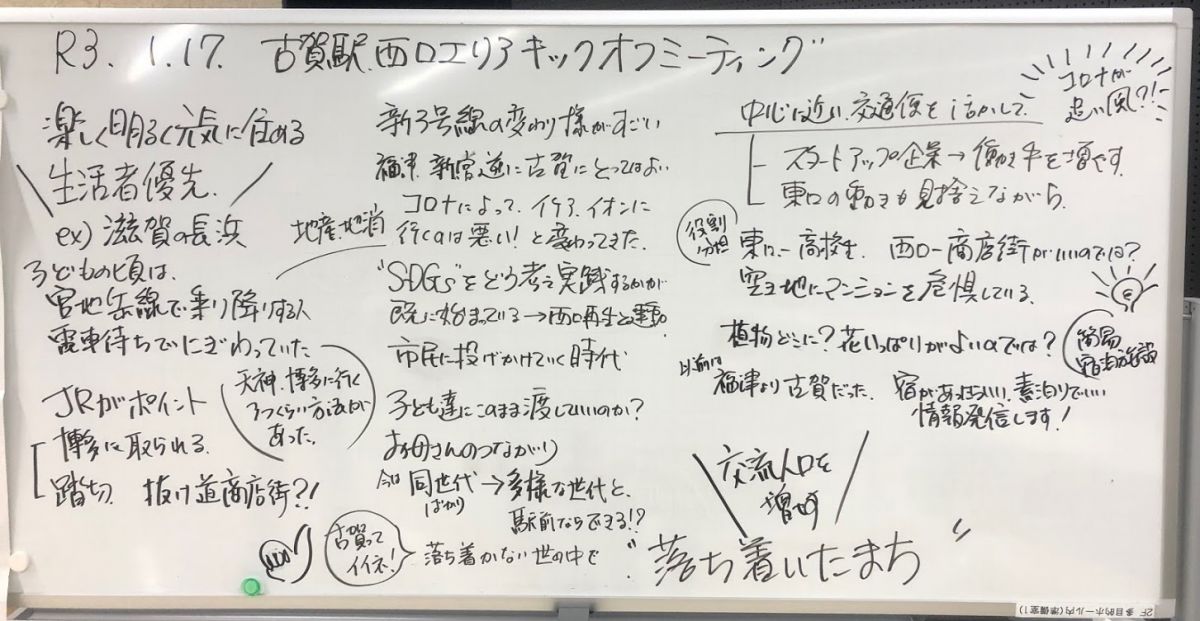 R3. 1.17. 古賀駅西口エリアキックオフミーティング
楽しく明るく元気に住める
生活者優先.
ex) 滋賀の長浜
子どもの頃は、
宮地岳線で乗り降りする人
電車待ちでにぎわっていた
JRがポイント
博多に取られる.
踏切. 抜け道商店街?!
天神、博多に行く
3つくらい方法が
あった.
地産地消
新3号線の変わり様がすごい
福津、新宮、逆に古賀にとってはよい
コロナによって、イケア、イオンに
行くのは悪い! と変わってきた.
"SDGs"をどう考え実践するかが
既に始まっている→西口再生と連動
市民に投げかけていく時代
子ども達にこのまま渡していいのか?
お母さんのつながり
今は 同世代→多様な世代と、
ばかり
駅前ならできる!?
古賀って
イイネ!
落ち着かない世の中で
"落ち着いたまち"
コロナが
追い風?!
中心に近い、交通便を活かして.
スタートアップ企業→働き手を増やす.
東口の動きも見捨てながら.
役割
分担
東口ー高校生、西口ー商店街がいいのでは?
空き地にマンションを危惧している.
植物どこに? 花いっぱいがよいのでは?
簡易
宿泊施設
以前は
福津より古賀だった.
宿があったらいい、素泊りでいい
情報発信します!
交流人口を
増やす
2F 多目的ホール内(準備室1)